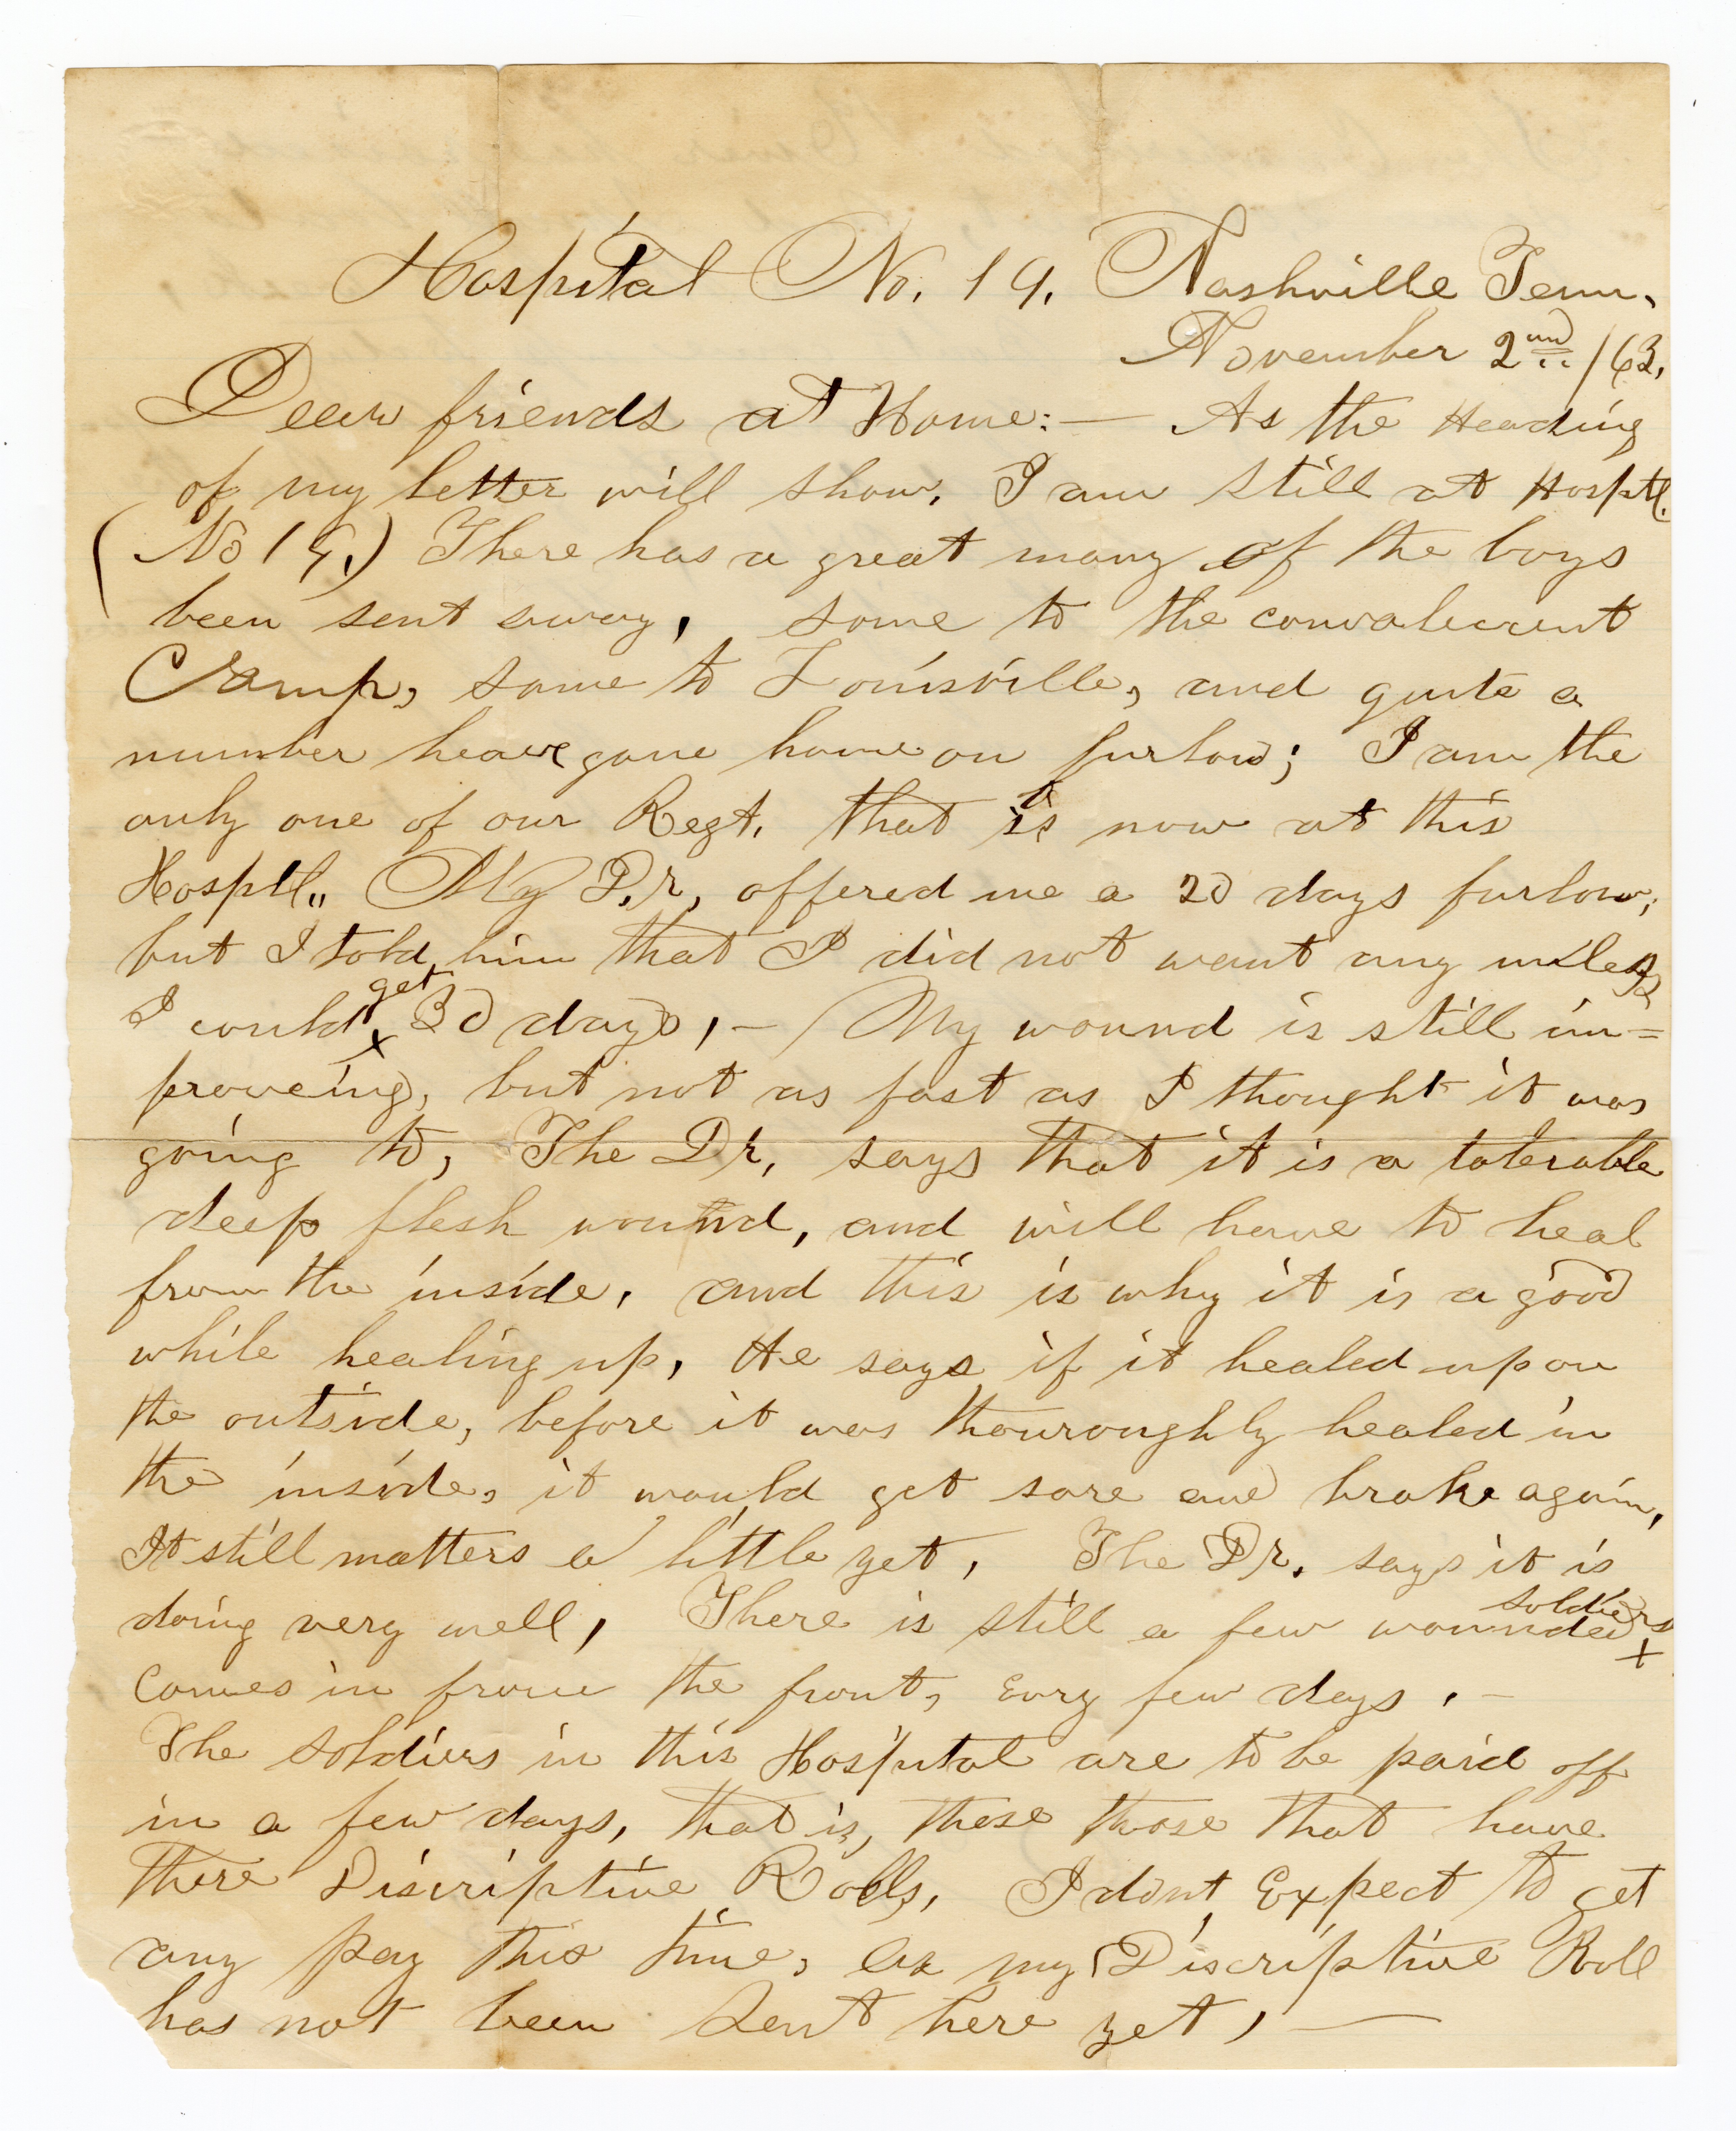 Hospital No. 19. Nashville Tenn.
November 2nd /63.
Dear friends at Home:— As the Heading
of my letter will show, I am still at Hosptl.
(No 19.) There has a great many of the boys
been sent away, some to the convalecent
Camp, some to Louisville, and quite a
number have gone home on furlow; I am the
only one of our Regt. that is now at this
Hosptl.. My Dr, offered me a 20 days furlow;
but I told him that I did not want any unless
I could get 30 days, — My wound is still im=
proveing, but not as fast as I thought it was
going to, The Dr, says that it is a tolerable
deep flesh wound, and will have to heal
from the inside, and this is why it is a good
while healing up, He says if it healed up on
the outside, before it was thouroughly healed in
the inside, it would get sore and brake again,
It still matters a little yet, The Dr. says it is
doing very well, There is still a few wounded soldiers
comes in from the front, evry few days. —
The soldiers in this Hospital are to be paid off
in a few days, that is, these those that have
there Discriptive Rolls, I dont, Expect to get
any pay this time, as my Discriptive Roll
has not been sent here yet, —